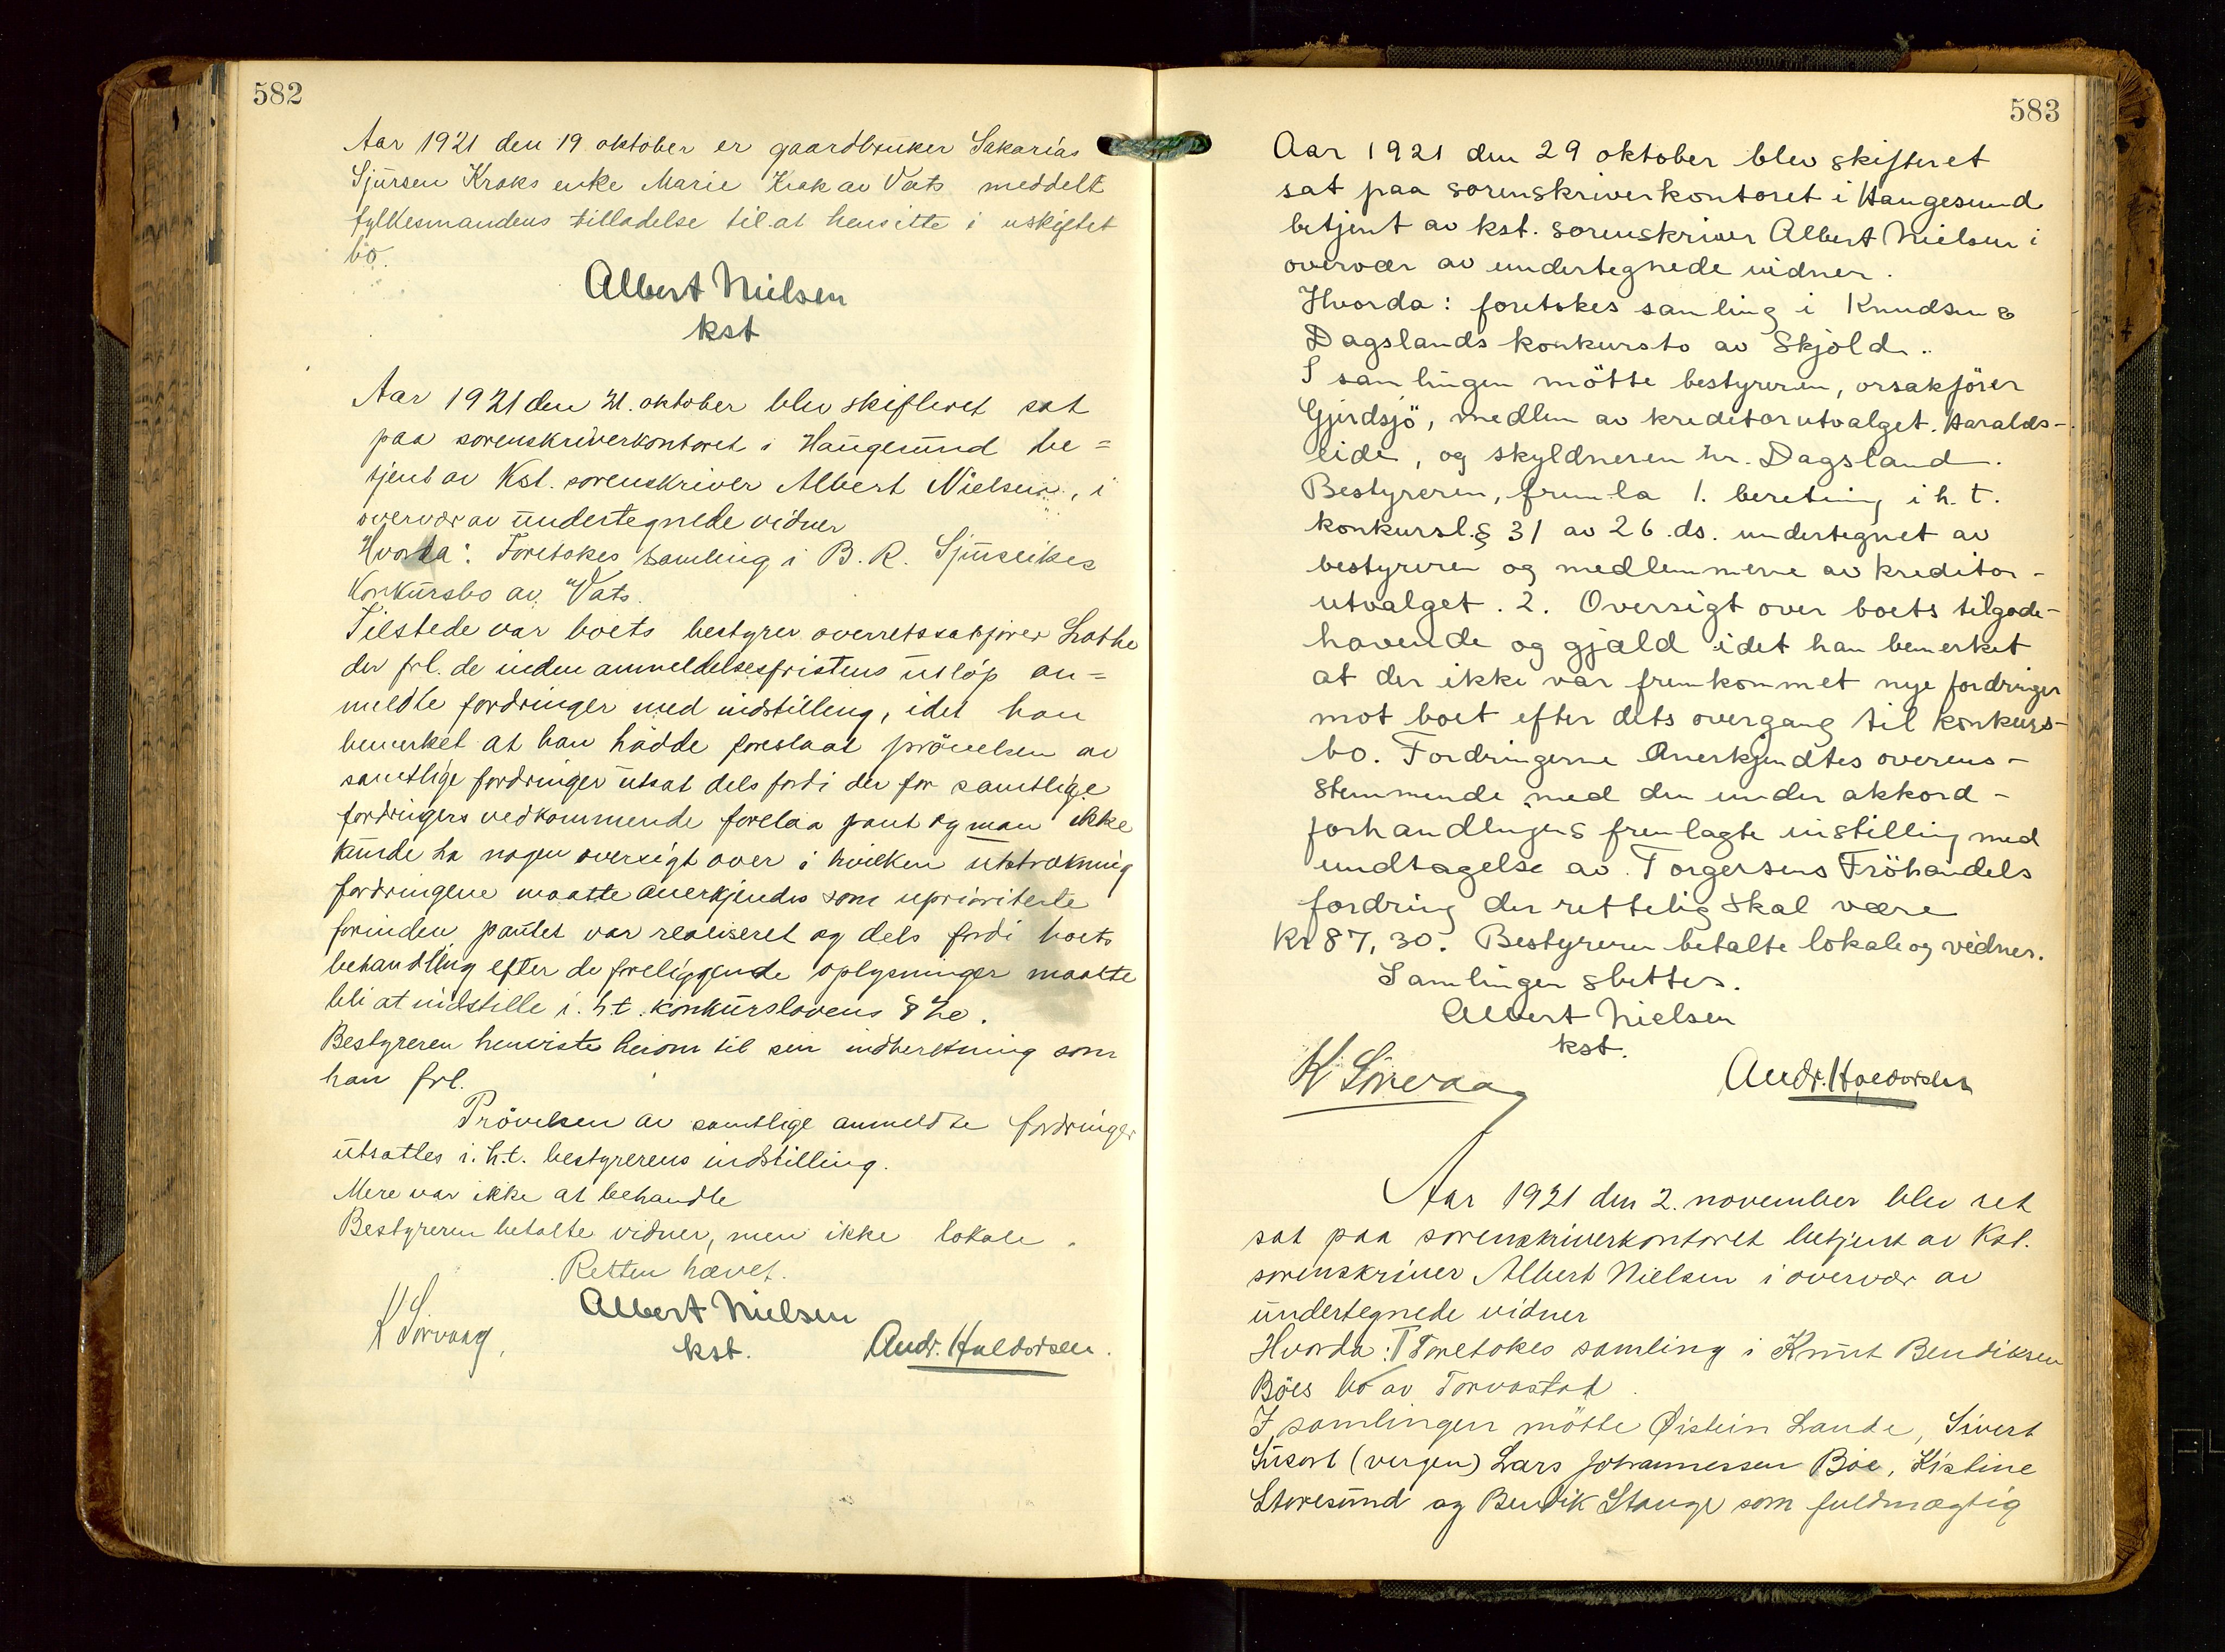 582
Aar 1921 den 19 oktober er gaardbruker Sakarias
Sjursen Kraks enke Marie Krak av Vats meddelt
fylkesmandens tilladelse til at hensitte i uskiftet
bo.
Albert Nielsen
kst
Aar 1921 den 21. oktober blev skifteret sat
paa sorenskriverkontoret i Haugesund be=
tjent av Kst. sorenskriver Albert Nielsen, i
overvær av undertegnede vidner
Hvorda: Foretokes samling i B. R.
Konkursbo av Vats.
Tilstede var boets bestyrer overretssakfører Lothe
der frl. de inden anmeldelsesfristens utløp an=
meldte fordringer med indstilling, idet han
bemerket at han hadde foreslaat prövelsen av
samtlige fordringer utsat dels fordi der for samtlige
fordringers vedkommende forelaa pant og man ikke
kunde ha nogen oversigt over i hvilken utstrækning
fordringene maatte anerkjendes som uprioriterte
forinden pantet var realiseret og dels fordi boets
behandling efter de foreliggende oplysninger maatte
bli at indstille i. h.t. konkurslovens §
Bestyreren henviste herom til sin indberetning som
han frl.
Prövelsen av samtlige anmeldte fordringer
utsattes i. h.t. bestyrerens indstilling.
Mere var ikke at behandle
Bestyreren betalte vidner, men ikke lokale.
Retten hævet.
Albert Nielsen
kst.
K Sørvaag,
Andr. Haldorsen.
583
Aar 1921 den 29 oktober blev skifteret
sat paa sorenskriverkontoret i Haugesund
betjent av kst. sorenskriver Albert Nielsen i
overvær av undertegnede vidner.
Hvorda: foretokes samling i Knudsen &
Dagslands konkursbo av Skjold.
I samlingen mötte bestyreren, orsakförer
Gjerdsjö, medlem av kreditorutvalget. Haralds-
eide, og skyldneren hr. Dagsland.
Bestyreren, fremla 1. beretning i h. t.
konkursl. § 31 av 26. ds. undertegnet av
bestyreren og medlemmene av kreditor-
utvalget. 2. Oversigt over boets tilgode-
havende og gjæld idet han bemerket
at der ikke var fremkommet nye fordringer
mot boet efter dets overgang til konkurs-
bo. Fordringerne Anerkjendtes overens-
stemmende med den under akkord-
forhandlingens fremlagte instilling med
undtagelse av Torgersens Fröhandels
fordring der rettelig skal være
Kr 87,30. Bestyreren betalte lokale og vidner.
Samlingen sluttes.
Albert Nielsen
kst.
K Sörvaag
Andr. Haldorsen
Aar 1921 den 2. november blev ret
sat paa sorenskriverkontoret betjent av Kst.
sorenskriver Albert Nielsen i overvær av
undertegnede vidner
Hvorda: Foretokes samling i Knut Bendiksen
Böes bo av Torvastad.
I samlingen mötte Øistein Lande, Sivert
(vergen) Lars Johannessen Böe, Kistine
Storesund og Bendik Stange som fuldmægtig